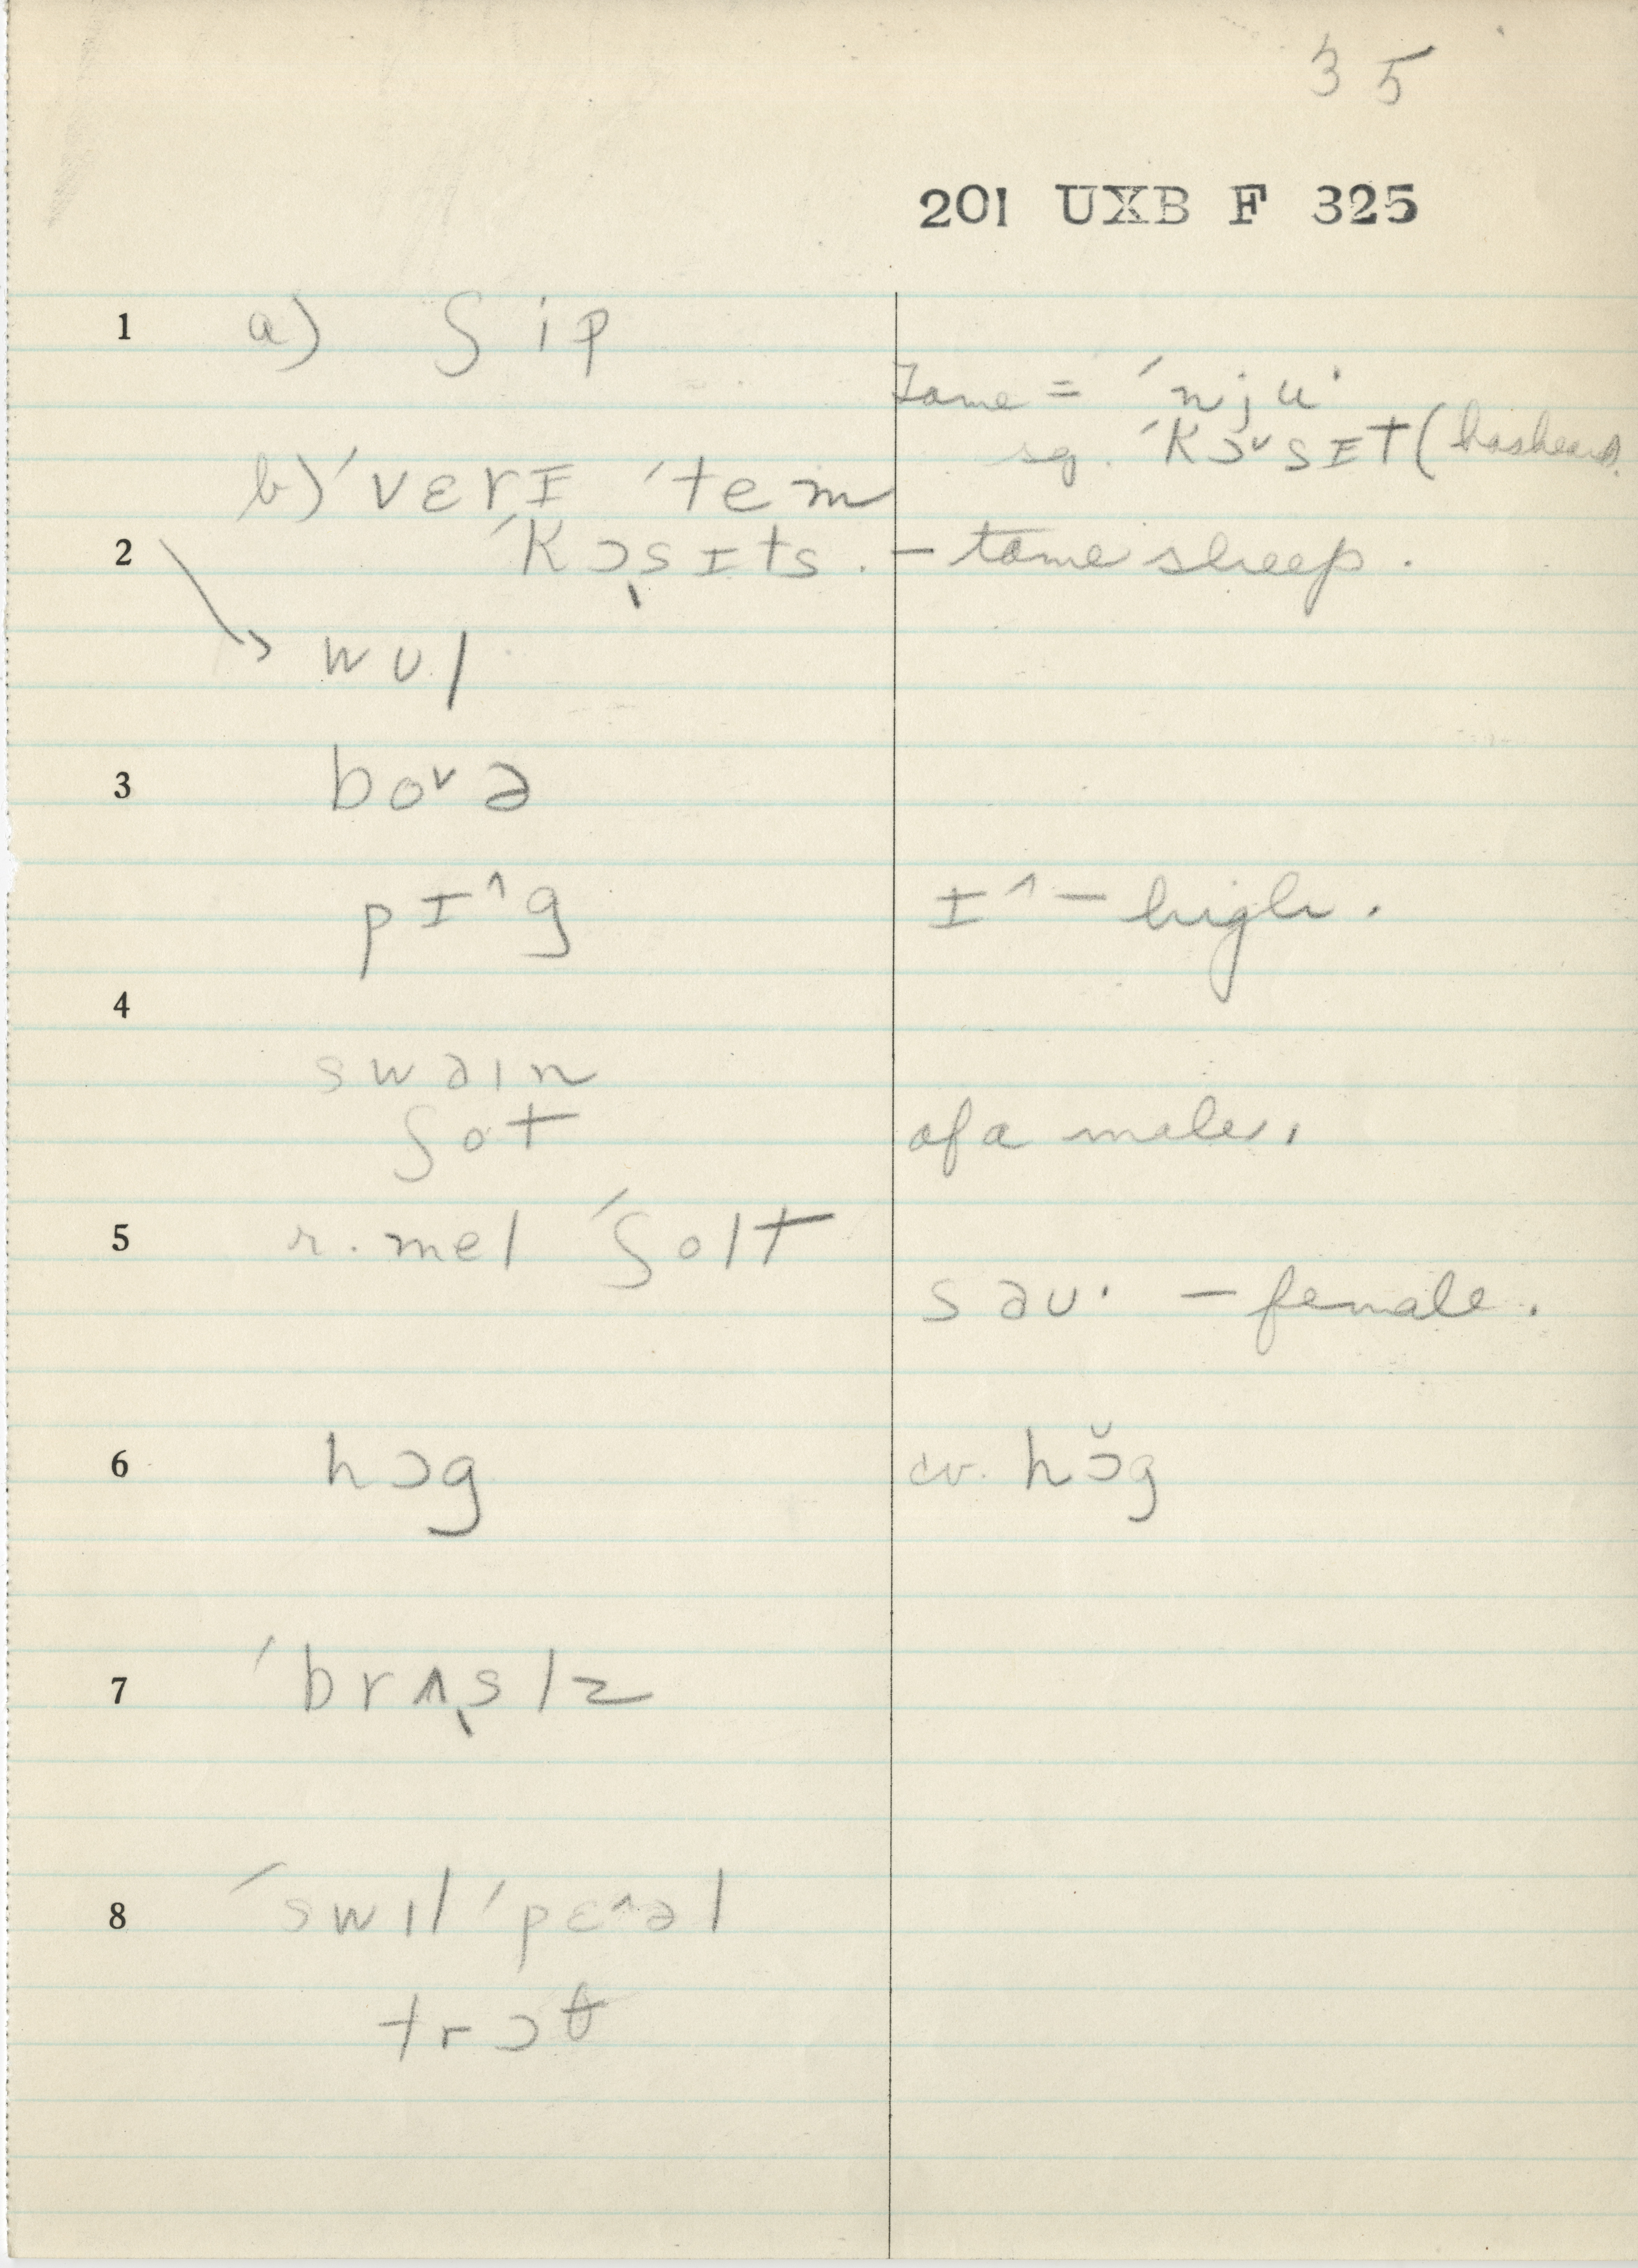 35
201 UXB F 325
1 a) ʃip
Tame = ˈnju·
sg. ˈkɔ˅sɪt (has heard).
b) ˈvɛrɪ ˈtem
2 ˈkɔ̖sɪts. – tame sheep.
wʊl
3 bo˅ə
pɪ^g ɪ^ – high.
4
swəin
ʃot of a male.
5 r. mel ˈʃolt
səʊ· – female.
6 hɔg cv. hɔ̆g
7 ˈbrʌ̖slz
8 ˈswɪl ˈpɛ^əl
trɔθ